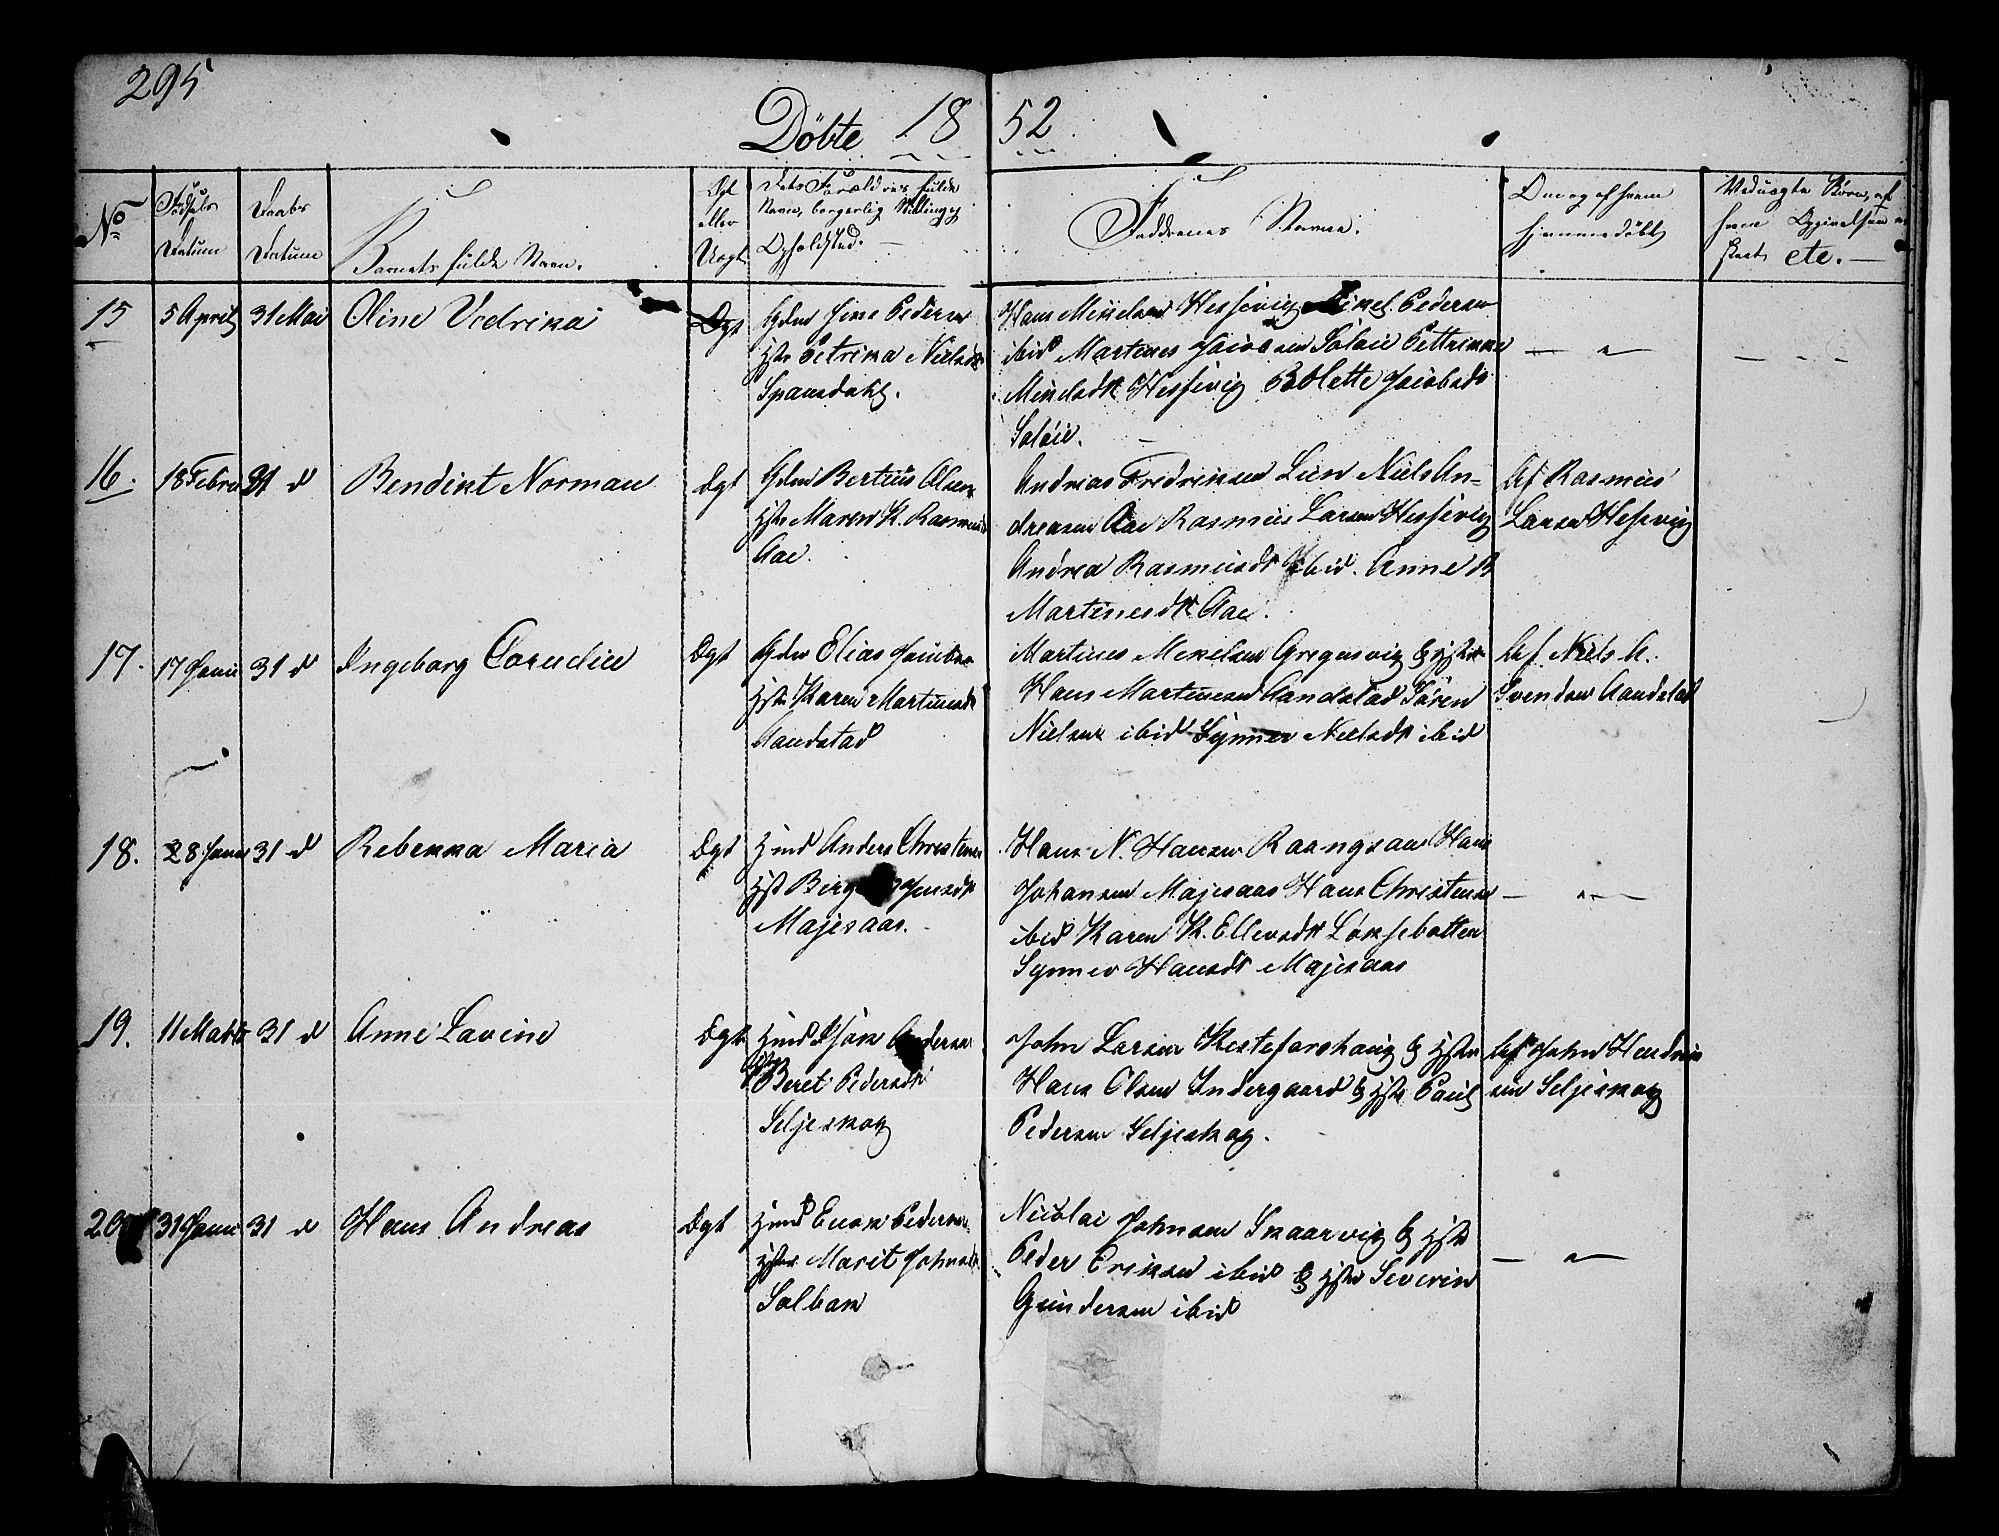 295
Döbte 18 52
No
Födsels Datum
Daabs Datum
Barnets fulde Navn.
Ægt eller Uægt
Dets Forældres fulde
Navn, borgerlig Stilling og
Opholdsted. —
Faddrenes Navne.
Om og af hvem
hjemmedöbt
Uduægte Börn, af
hvem Opgivelsen er
skeet etc. —
15 5 April 31 Mai Oline Vedrika Ægt
Gdm Jens Pedersen
Hstr Petrika Nielsdt
Spansdahl.
Hans Mikelsen Hessevig Mikel Pedersen
ibid Martines Jacobsen Soloie Pettrikke
Mikelsdt Hessevig Bolette Jacobsdt
Soloie.
— " —
16. 18 Febru 31 d Bendikt Norman Ægt
Gdm Bertius Olsen
Hstr Maren K. Rasmusd
Aae.
Andreas Fredriksen Lien Niels An=
dreasen Aae Rasmus Larsen Hessevig
Andrea Rasmusdt ibid. Anne B
Martinesdt Aae.
Af Rasmus
Larsen Hessevig
17. 17 Janu 31 d Ingeborg Cornelie Ægt
Gdm Elias Jacobsen
Hstr Karen Martinusdt
Aandstad
Martines Mikelsen Gregusvig & Hstr
Hans Martinesen Aandstad Sören
Nielsen ibid Synnev Nielsdt ibid
Af Niels A.
Svendsen Aandstad
18. 28 Janu 31 d Rebekka Maria Ægt
Hmd Anders Christensen
Hst Jensdt
Majesaas.
Hans N. Hansen Hans
Johansen Majesaas Hans Christensen
ibid Karen K. Ellevsdt Löksebotten
Synnev Hansdt Majesaas
— " —
19. 11 Marts 31 d Anne Lavine Ægt
Hmd Andersen
Hstr Beret Pedersdt
Seljeskog
John Larsen & Hstr
Hans Olsen Indergaard & Hstr Paul
Pedersen Seljeskog.
Af John Hendrik
sen Seljeskog
20 31 Janu 31 d Hans Andreas Ægt
Hmd Enok Pedersen
Hstr Marit Johnsdt
Solbak
Nicolai Johnsen Skaarvig & Hstr
Peder Eriksen ibid & Hstr Severin
Gundersen ibid
— " —